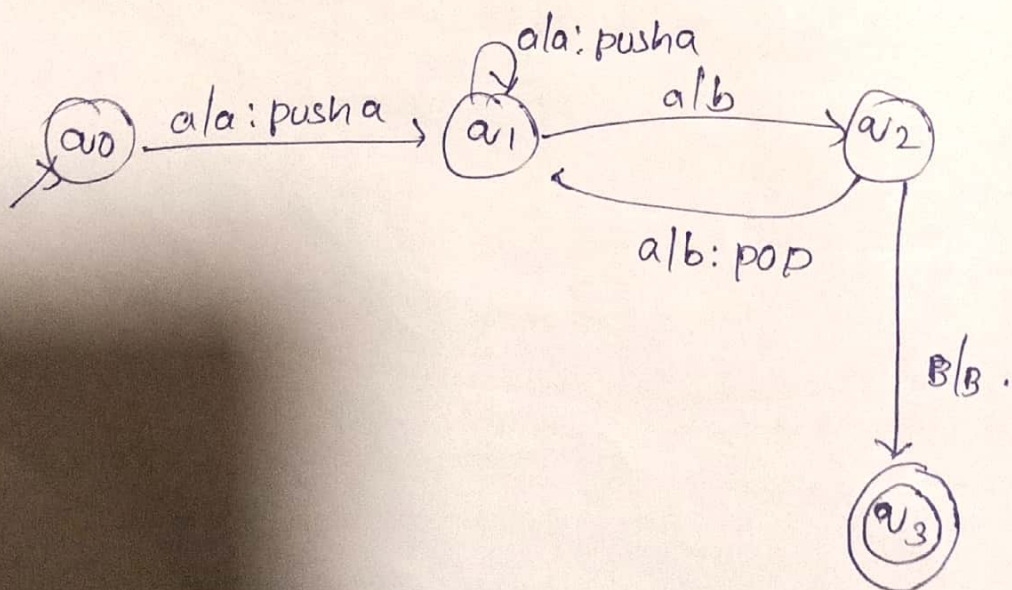 a/a: pusha
q0
a/a: pusha
q1
a/b
q2
a/b: pop
B/B .
q3